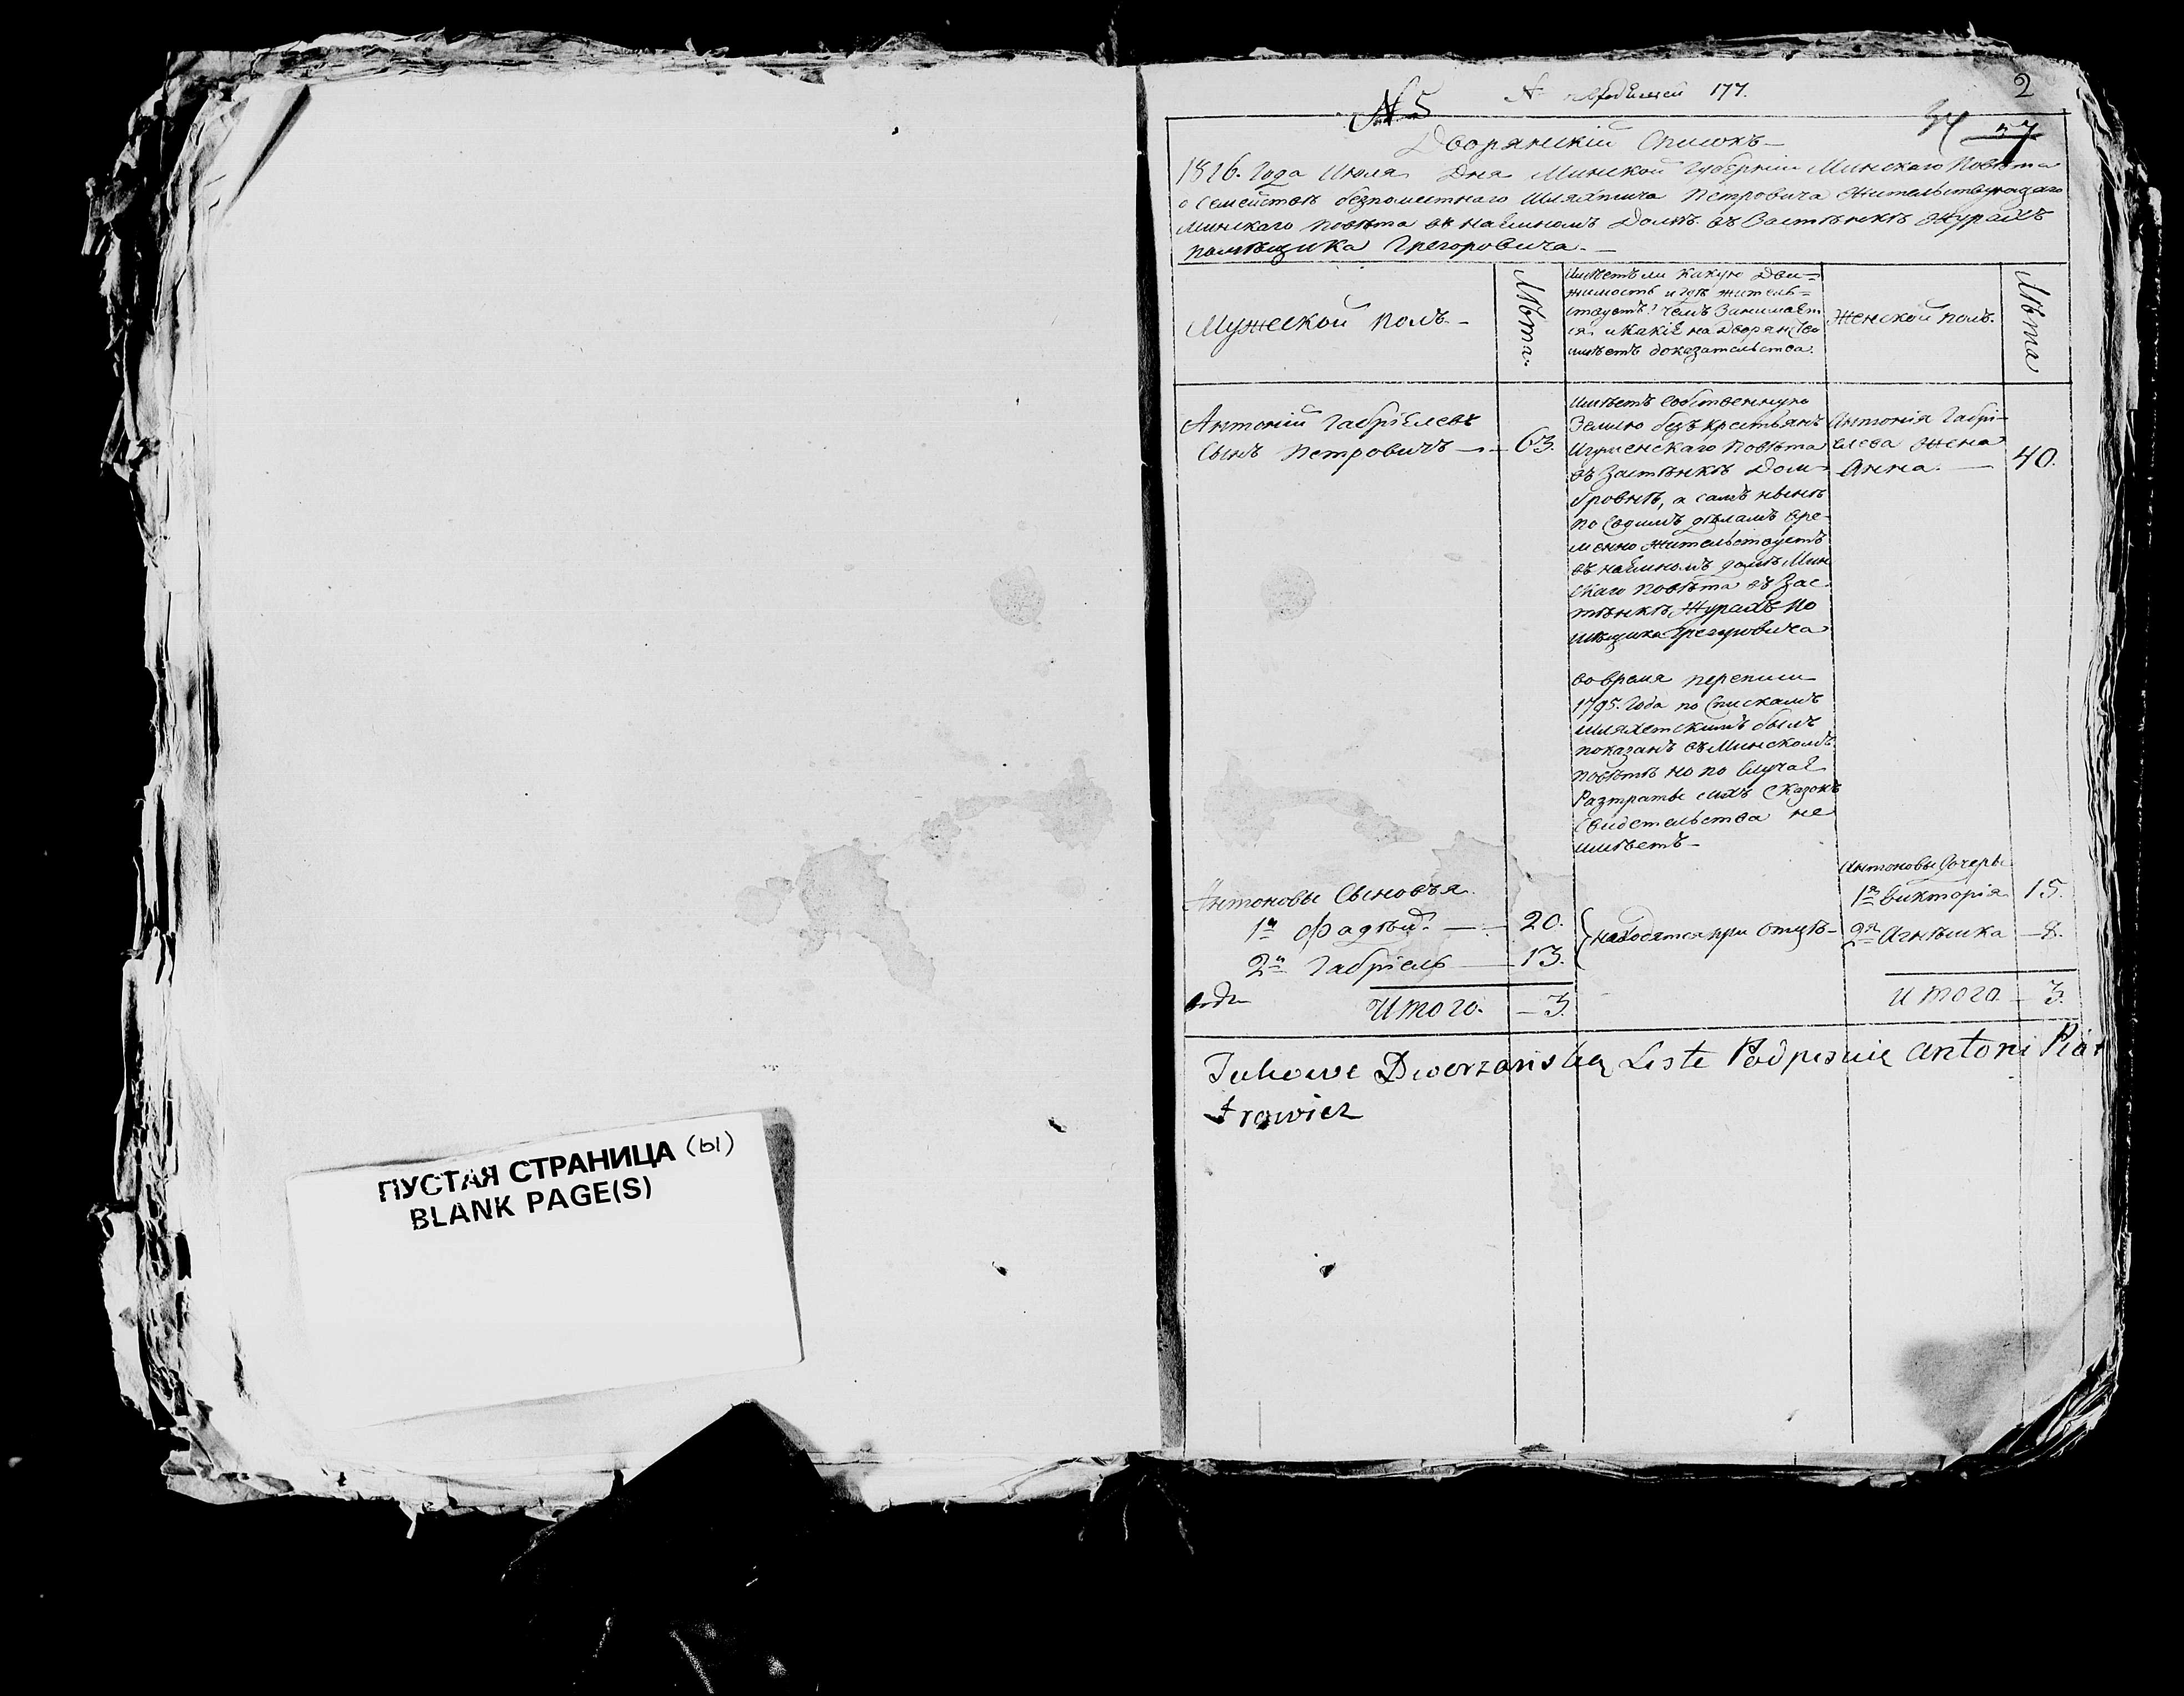 ПУСТАЯ СТРАНИЦА (ы)
BLANK PAGE(S)
2
177.
№ 5
34
37
Дворянскій Списокъ
1816. Года Июля Дня Минской Губерніи Минскаго Повѣта
о Семействѣ безпоместнаго Шляхтича Петровича Жительствующаго
Минскаго повѣта въ наемномъ Домѣ въ Застѣнкѣ Журахъ
помѣщика Грегоровича.
Мужеской полъ
Лѣта.
Имѣетъ ли какую Дви=
жимость и гдѣ житель=
ствуетъ? чемъ Занимает
ся и какіе на дворянство
имѣетъ доказательства.
Женской полъ.
Лѣта
Антоній Габріелевъ
Сынъ Петровичъ — 63.
Имѣетъ Собственную
Землю безъ крестьянъ
Игуменскаго Повѣта
въ Застѣнкѣ Дом-
бровкѣ, а самъ нынѣ
по Своимъ дѣламъ вре-
менно жительствуетъ
въ наемномъ домѣ Мин
скаго Повѣта въ Зас-
тѣнкѣ Журахъ По
мѣщика Грегоровича
во время переписи
1795. Года по Спискамъ
Шляхетскимъ былъ
показанъ въ Минскомъ
повѣтѣ но по Случае
Разтраты сихъ Сказокъ
Свидетельства не
имѣетъ
Антонія Габрі-
елева жена
Анна. — 40.
Антоновы Сыновья
1й Фадѣй. — 20.
2й Габріель — 13.
Находятся при Отцѣ
Антоновы Дочеры
1я Викторія 15.
2я Агнѣшка — 8.
Итого. — 3.
Итого — 3.
Takowe Dworzanską Liste Podpisuię Antoni Piot
trowicz